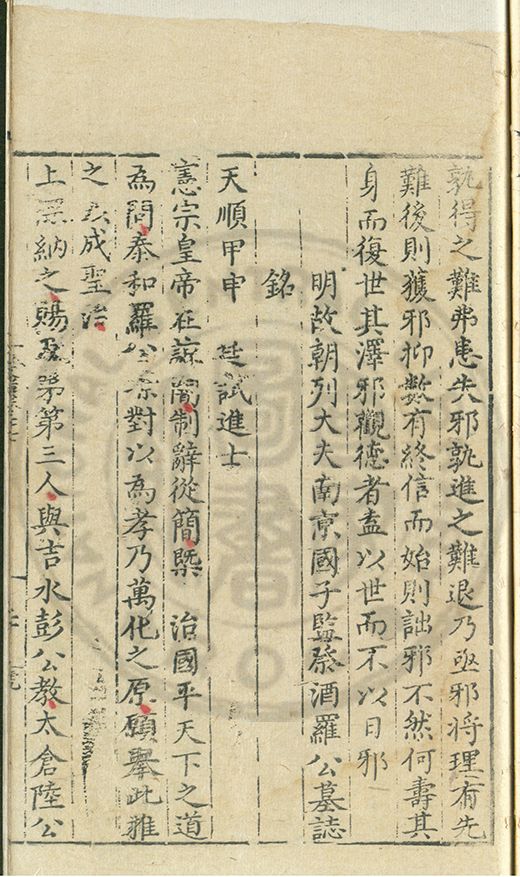 孰得之難弗患失邪孰進之難退乃亟邪將理有先
難後則獲邪抑數有終信而始則詘邪不然何壽其
身而復世其澤邪觀德者盍以世而不以日邪
明故朝列大夫南京國子監祭酒羅公墓誌
銘
天順甲申 廷試進士
憲宗皇帝在諒闇制辭從簡槩 治國平天下之道
為問泰和羅公 對以為孝乃萬化之原願舉此推
之以成聖治
上嘉納之賜及第第三人與吉水彭公教太倉陸公